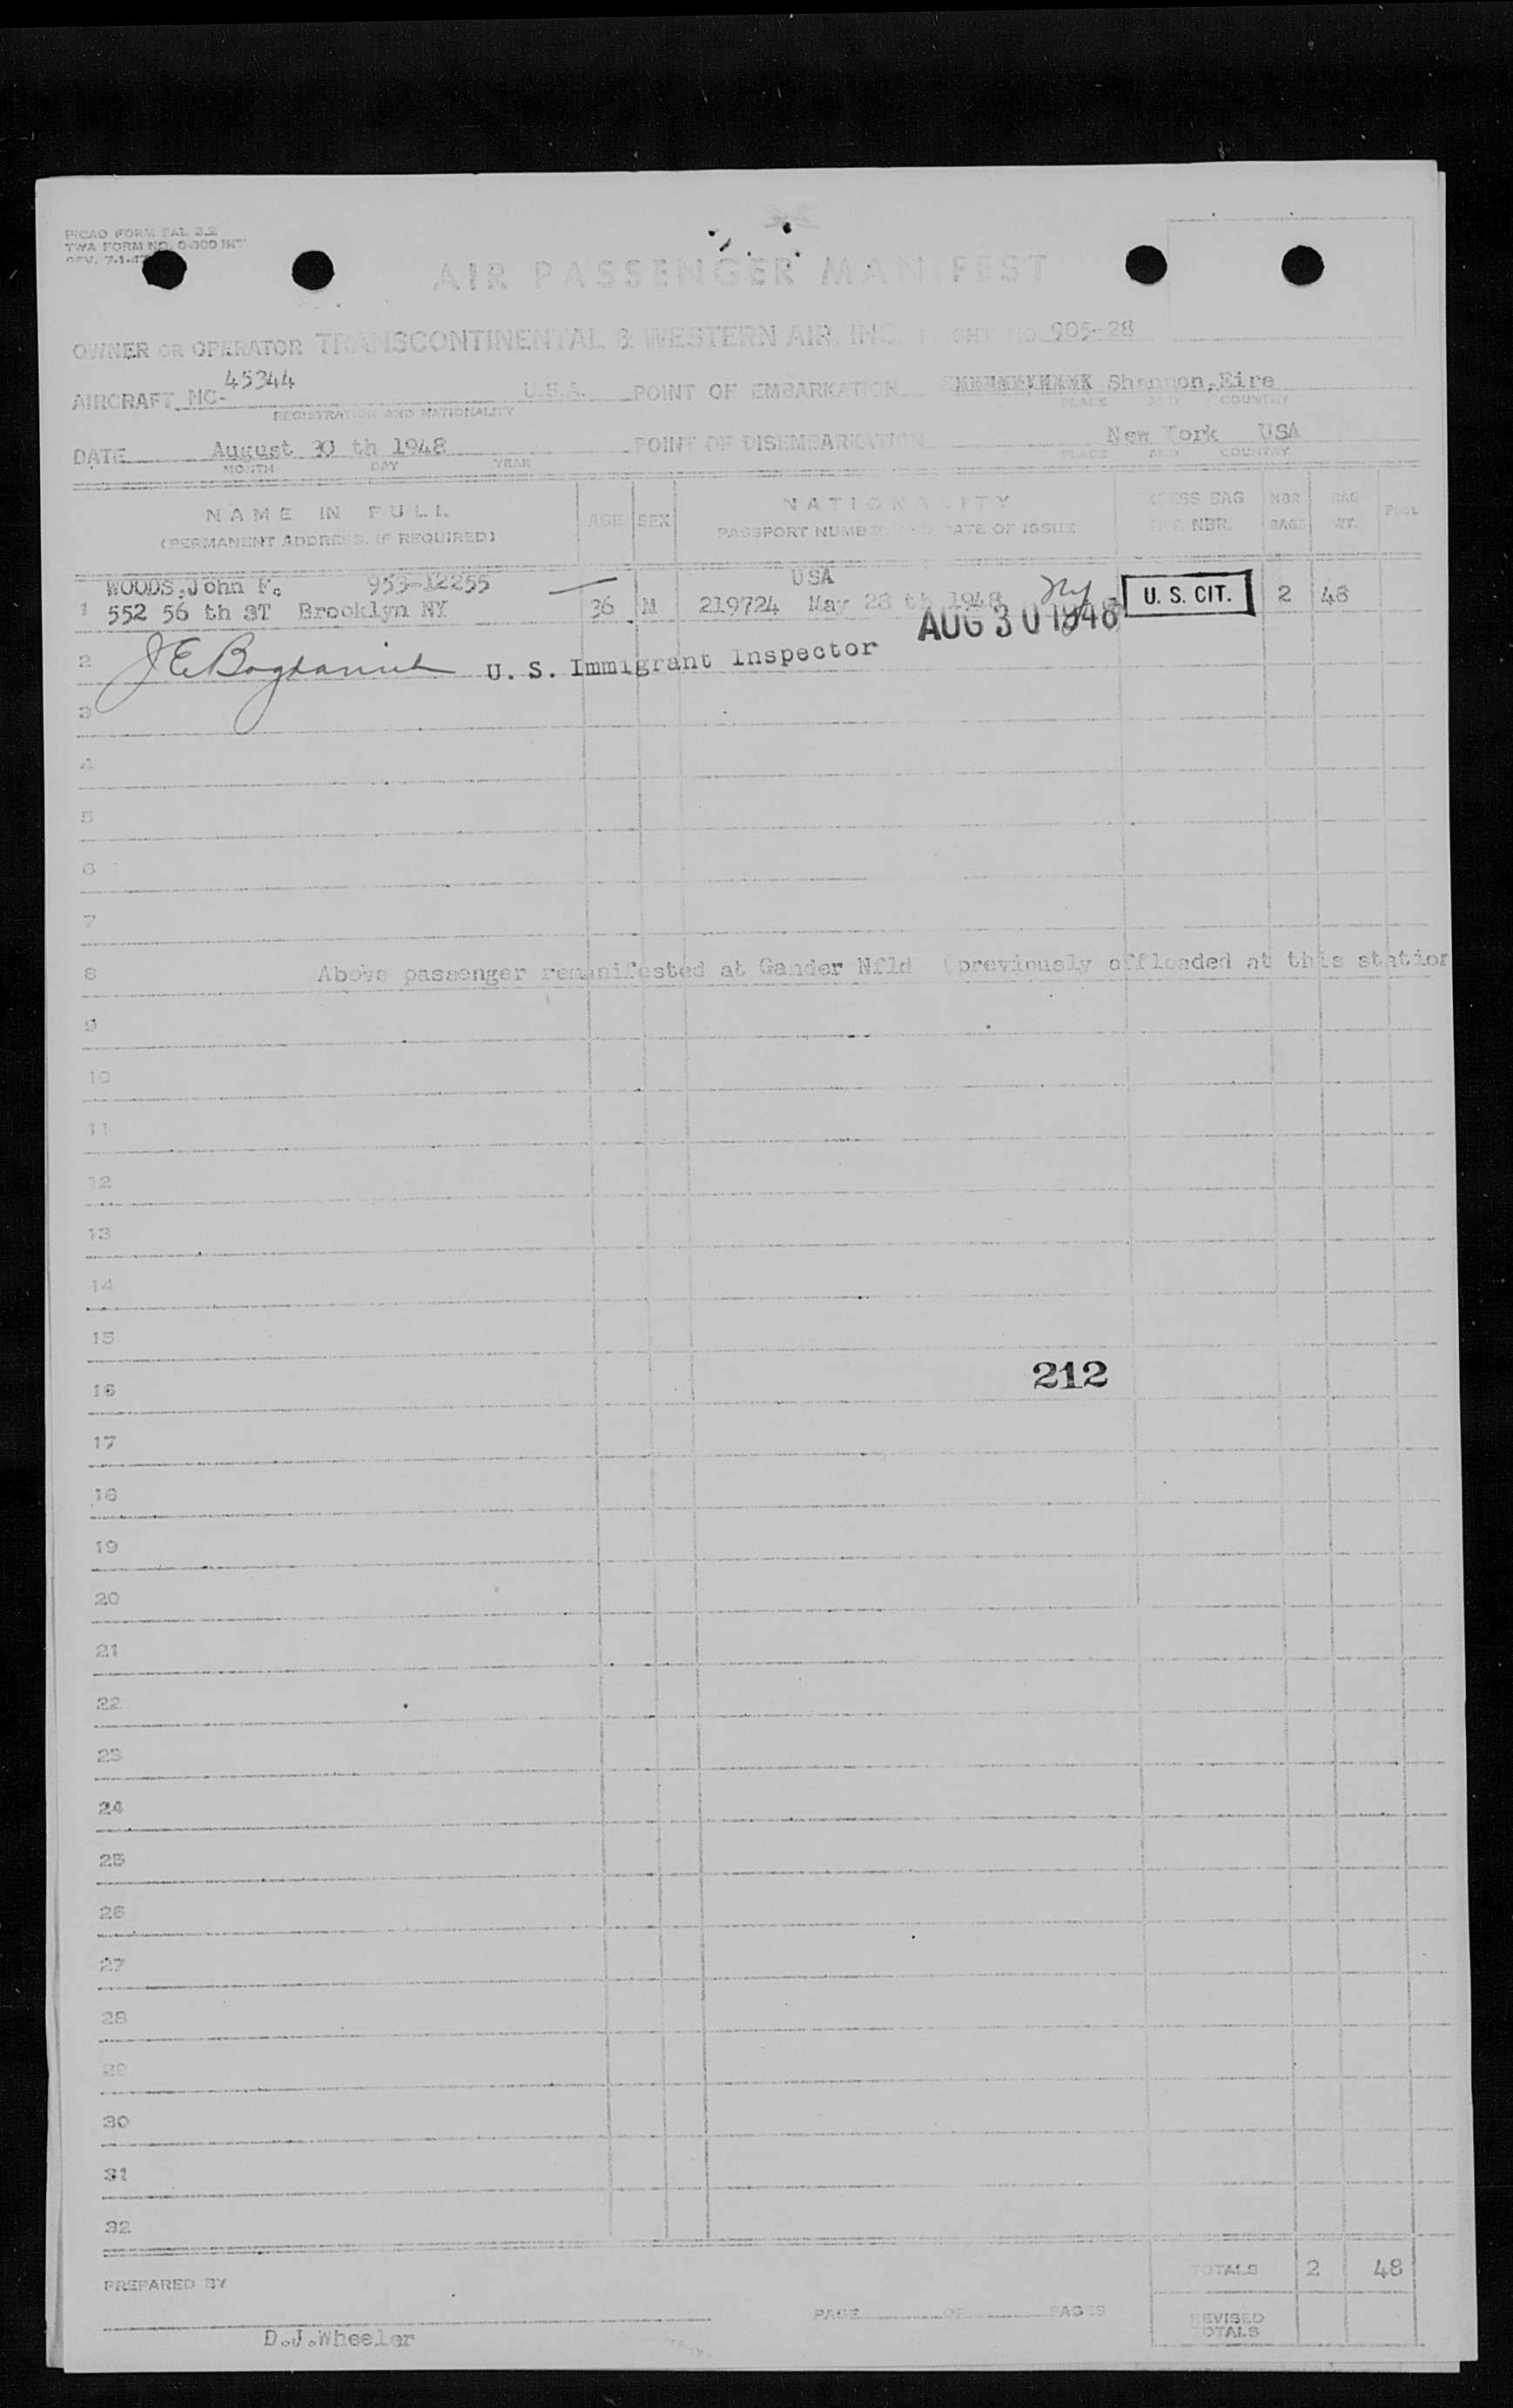 PICAO FORM PAL 2.2
TWA FORM NO. 0-300 INT
REV. 7-1-47
AIR PASSENGER MANIFEST
OWNER OR OPERATOR TRANSCONTINENTAL & WESTERN AIR, INC. FLIGHT NO. 905-28
AIRCRAFT NC- 45344 U.S.A. POINT OF EMBARKATION Shannon, Eire
REGISTRATION AND NATIONALITY PLACE AND COUNTRY
DATE August 30 th 1948 POINT OF DISEMBARKATION New York USA
MONTH DAY YEAR PLACE AND COUNTRY
NAME IN FULL
(PERMANENT ADDRESS, IF REQUIRED)
AGE SEX
NATIONALITY
PASSPORT NUMBER AND DATE OF ISSUE
EXCESS BAG
TKT. NBR.
NBR BAGS
BAG WT.
POOL
WOODS, John F. 953-12255 USA
1 552 56 th ST Brooklyn NY 36 M 219724 May 28 th 1948 U. S. CIT. 2 48
AUG 30 1948
2 U. S. Immigrant Inspector
3
4
5
6
7
8 Above passenger remanifested at Gander Nfld (previously offloaded at this station
9
10
11
12
13
14
15
212
16
17
18
19
20
21
22
23
24
25
26
27
28
29
30
31
32
TOTALS 2 48
PREPARED BY
PAGE OF PAGES
REVISED TOTALS
D.J.Wheeler